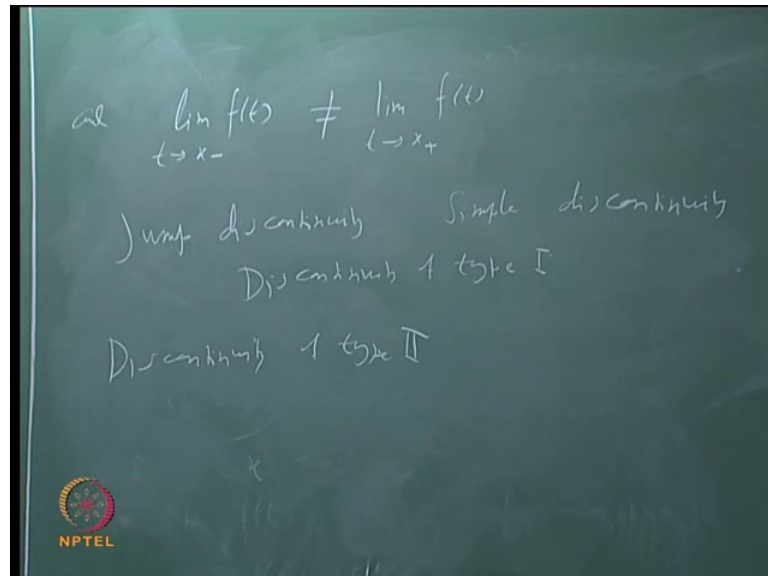 and lim f(t) ≠ lim f(t)
t→x- t→x+
Jump discontinuity Simple discontinuity
Discontinuity of type I
Discontinuity of type II
NPTEL